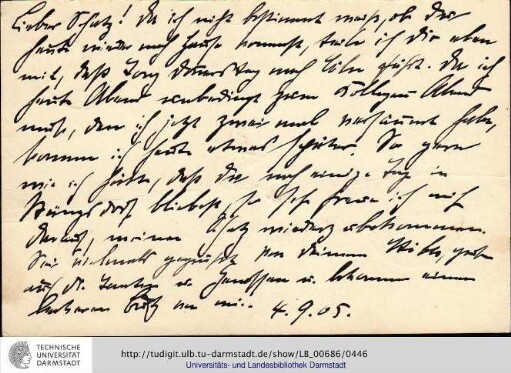 Lieber Schatz! Da ich nicht bestimmt weiß, ob Du
heute wieder nach Hause kommst, teile ich Dir eben
mit, daß Donnerstag nach Köln. Da ich
heute Abend unbedingt zum Kollegen Abend
muß, den ich jetzt zwei mal versäumt habe,
komme ich heute etwas später. So gern
wie ich hätte, daß Du noch einige Tage in
bliebest, so sehr freue ich mich
darauf, meinen Schatz wieder zu bekommen.
Sei vielmals gegrüßt von Deinem
u. u. einen
von 4.9.05.
TECHNISCHE
UNIVERSITÄT
DARMSTADT
http://tudigit.ulb.tu-darmstadt.de/show/LB_00686/0446
Universitäts- und Landesbibliothek Darmstadt